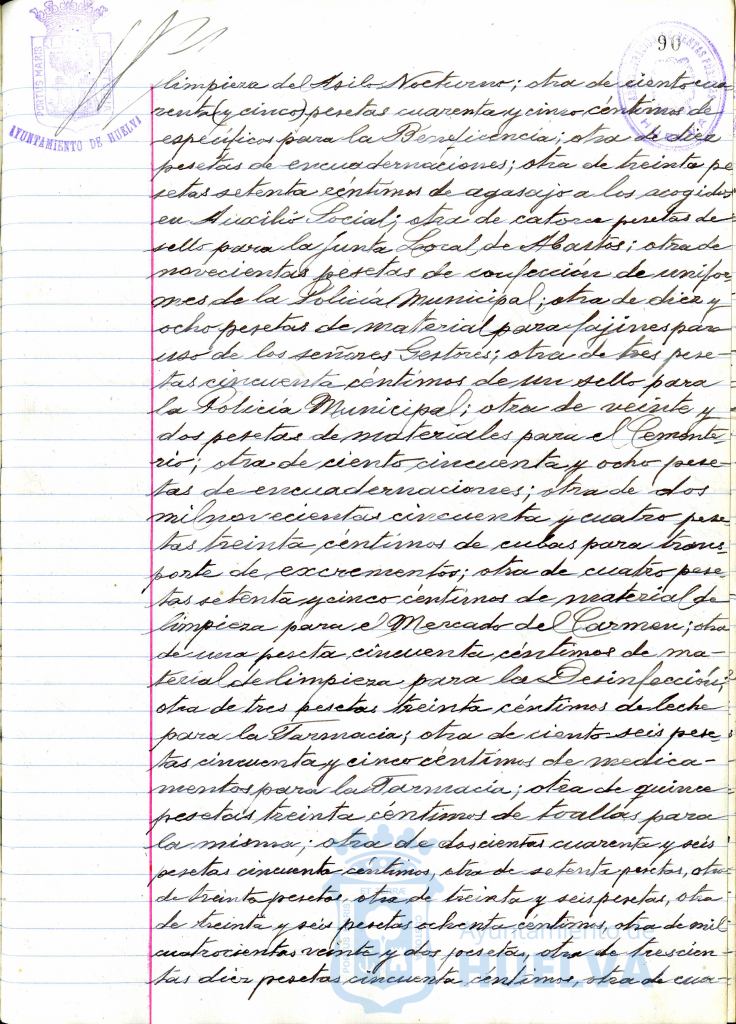 90
PORTUS MARIS
AYUNTAMIENTO DE HUELVA
limpieza del Asilo Nocturno; otra de ciento cua-
renta (y cinco) pesetas cuarenta y cinco céntimos de
específicos para la Beneficencia; otra de diez
pesetas de encuadernaciones; otra de treinta pe
setas setenta céntimos de agasajo a los acogidos
en Auxilio Social; otra de catorce pesetas de
sello para la Junta Local de Abastos; otra de
novecientas pesetas de confección de unifor-
mes de la Policía Municipal; otra de diez y
ocho pesetas de material para fajines para
uso de los señores Gestores; otra de tres pese-
tas cincuenta céntimos de un sello para
la Policía Municipal; otra de veinte y
dos pesetas de materiales para el Cemente
rio; otra de ciento cincuenta y ocho pese-
tas de encuadernaciones; otra de dos
mil novecientas cincuenta y cuatro pese-
tas treinta céntimos de cubas para trans-
porte de excrementos; otra de cuatro pese-
tas setenta y cinco céntimos de material de
limpieza para el Mercado del Carmen; otra
de una peseta cincuenta céntimos de ma-
terial de limpieza para la Desinfección;
otra de tres pesetas treinta céntimos de leche
para la Farmacia; otra de ciento seis pese-
tas cincuenta y cinco céntimos de medica-
mentos para la Farmacia; otra de quince
pesetas treinta céntimos de toallas para
la misma; otra de doscientas cuarenta y seis
pesetas cincuenta céntimos, otra de setenta pesetas, otra
de treinta pesetas, otra de treinta y seis pesetas, otra
de treinta y seis pesetas ochenta céntimos, otra de mil
cuatrocientas veinte y dos pesetas, otra de trescien-
tas diez pesetas cincuenta céntimos, otra de cua-
Ayuntamiento de
HUELVA